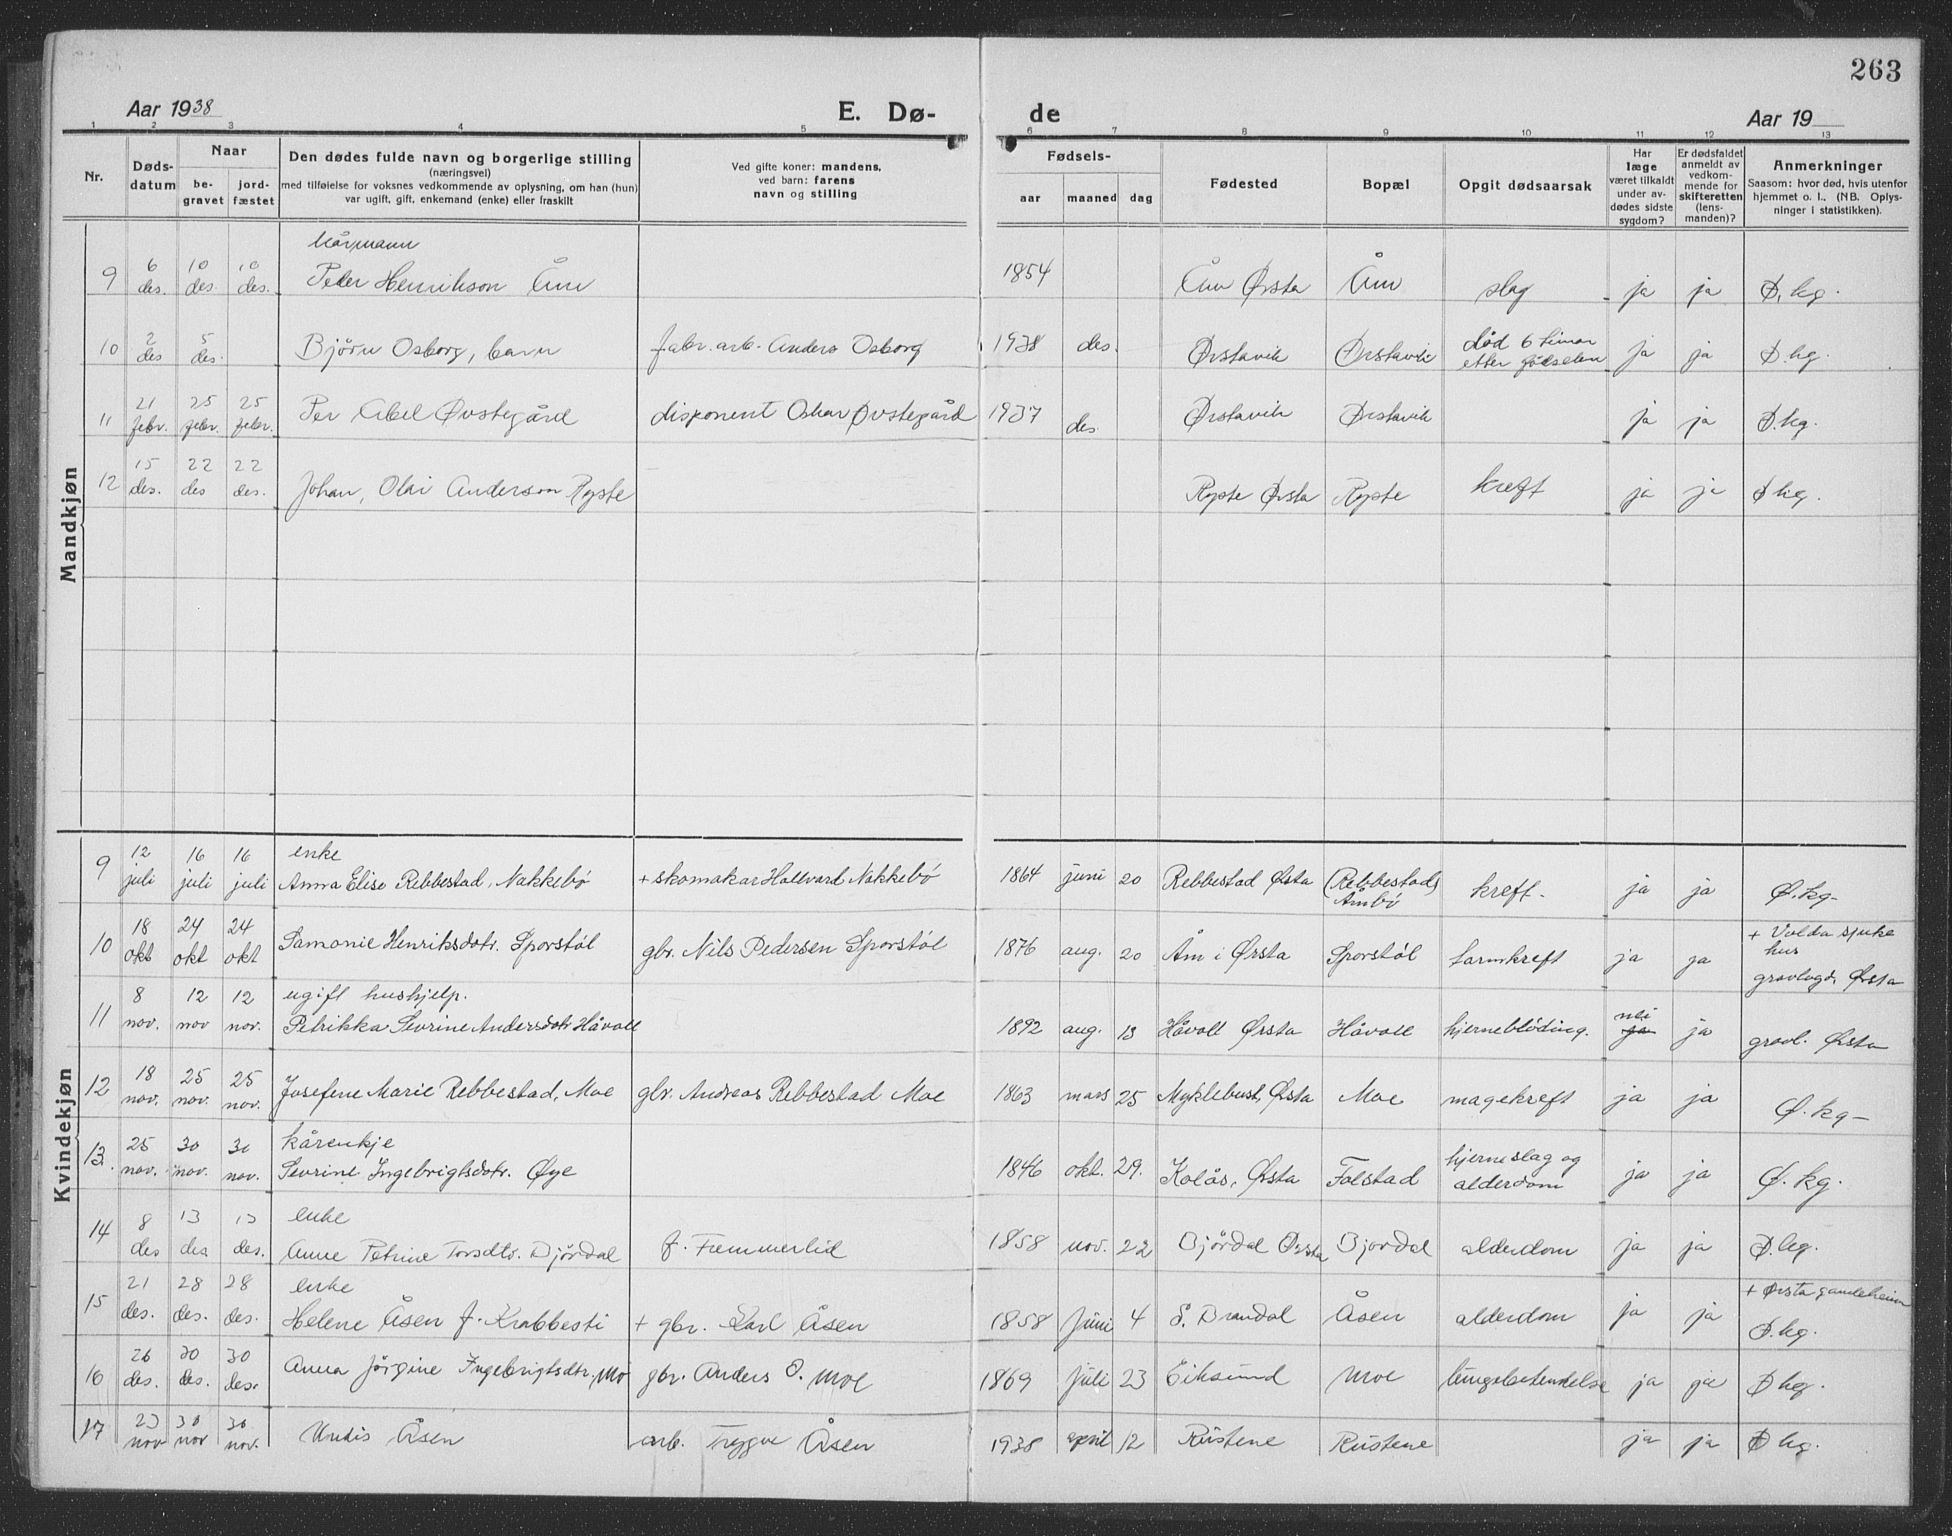 263
Aar 1938 E. Dø- de Aar 19
1 2 3 4 5 6 7 8 9 10 11 12 13
Nr. Døds-datum Naar be-gravet jord-fæstet Den dødes fulde navn og borgerlige stilling (næringsvei) med tilføielse for voksnes vedkommende av oplysning, om han (hun) var ugift, gift, enkemand (enke) eller fraskilt Ved gifte koner: mandens, ved barn: farens navn og stilling Fødsels- aar maaned dag Fødested Bopæl Opgit dødsaarsak Har læge været tilkaldt under av-dødes sidste sygdom? Er dødsfaldet anmeldt av vedkom-mende for skifteretten (lens-manden)? Anmerkninger Saasom: hvor død, hvis utenfor hjemmet o. l., (NB. Oplys-ninger i statistikken).
Mandkjøn
kårmann
9 6 des. 10 des. 10 des. Peter Henrikson Åm 1854 Åm Ørsta Åm slag ja ja Ø. kg.
10 2 des 5 des. Bjørn Osborg, barn fabr. arb. Anders Osborg 1938 des. Ørstavik Ørstavik død 6 timar etter fødselen ja ja Ø. kg.
11 21 febr. 25 febr. 25 febr. Per Abel Øvstegård disponent Oskar Øvstegård 1937 des. Ørstavik Ørstavik ja ja Ø. kg.
12 15 des. 22 des 22 des. Johan, Olai Anderson Ryste Ryste Ørsta Ryste kreft ja ja Ø kg.
Kvindekjøn
enke
9 12 juli 16 juli 16 juli Anna Elise Rebbestad, Nakkebø + skomakar Hallvard Nakkebø 1864 juni 20 Rebbestad Ørsta (Rebbestad) Åmbø kreft. ja ja Ø. kg.
10 18 okt 24 okt 24 okt Samonie Henriksdotr. Sporstøl gbr. Nils Pedersen Sporstøl 1876 aug. 20 Åm i Ørsta Sporstøl tarmkreft ja ja + Volda sjukehus gravlagd, Ørsta
ugift hushjelp.
11 8 nov. 12 nov 12 nov. Petrikka Sevrine Andersdotr Håvoll 1892 aug. 13 Håvoll Ørsta Håvoll hjernebløding. nei ja ja gravl. Ørsta
12 18 nov. 25 nov. 25 nov. Josefine Marie Rebbestad, Moe gbr. Andreas Rebbestad Moe 1863 mars 25 Myklebust, Ørsta Moe magekreft ja ja Ø. kg.
kårenkje
13. 25 nov. 30 nov. 30 nov. Sevrine Ingebrigtsdotr. Øye 1846 okt. 29. Kolås, Ørsta Folstad hjerneslag og alderdom ja ja Ø. kg.
enke
14 8 des 13 des 13 des. Anne Petrine Torsdtr. Bjørdal f. Fremmerlid 1858 nov. 22 Bjørdal Ørsta Bjørdal alderdom ja ja Ø. kg.
enke
15 21 des. 28 des. 28 des. Helene Åsen f. Krabbesti + gbr. Karl Åsen 1858 juni 4 S. Brandal Åsen alderdom ja ja + Ørsta gamleheim Ø. kg.
16 26 des. 30 des. 30 des. Anna Jørgine Ingebrigtsdtr, Mo gbr. Anders O. Moe 1869 juli 23 Eiksund Moe lungebetendelse ja ja Ø kg.
17 23 nov 30 nov 30 nov. Undis Åsen arb. Trygve Åsen 1938 april 12 Rustene Rustene ja ja Ø kg.